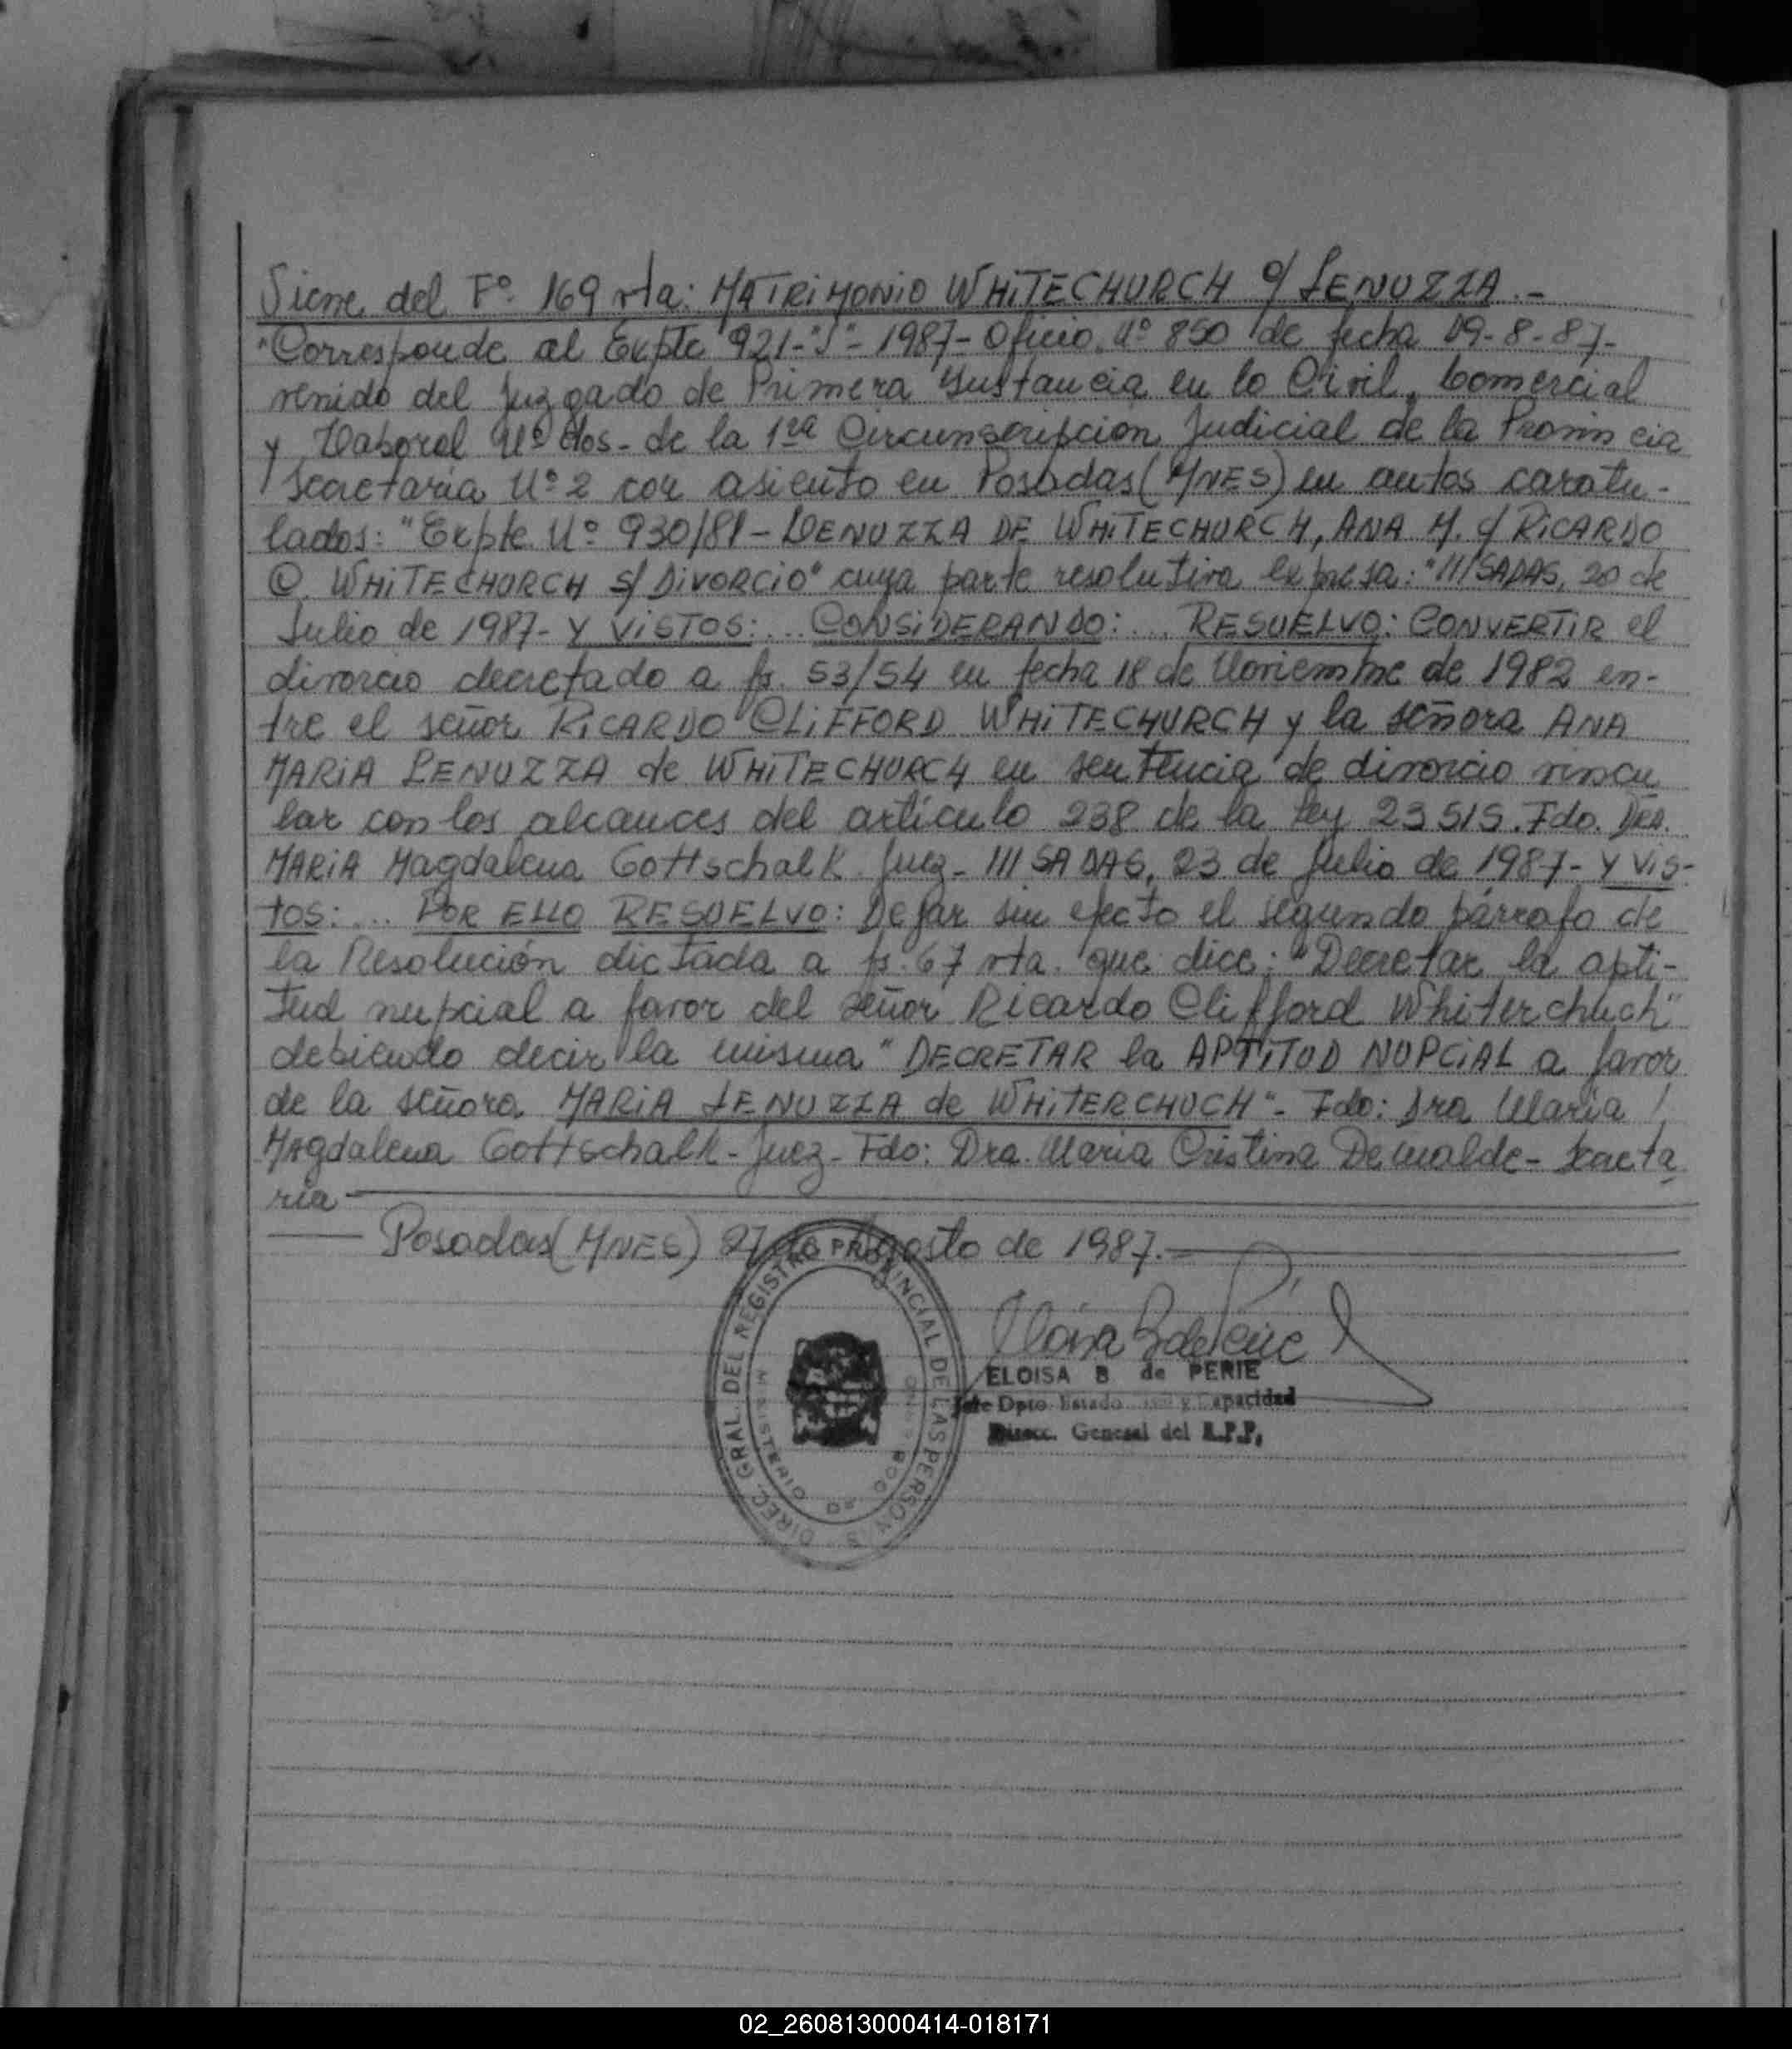 Viene del Fº 169 vta: MATRIMONIO WHITECHURCH c/ LENUZZA.-
"Corresponde al Expte 921-"J"- 1987- Oficio Nº 850 de fecha 19-8-87-
venido del Juzgado de Primera Instancia en lo Civil, Comercial
y Laboral Nº dos- de la 1ra Circunscripcion Judicial de la Provincia
Secretaria Nº 2 con asiento en Posadas (MNES) en autos caratu-
lados: "Expte Nº 930/81- LENUZZA DE WHITECHURCH, ANA M. c/ RICARDO
C. WHITECHURCH S/ DIVORCIO" cuya parte resolutiva expresa: "///SADAS, 20 de
Julio de 1987- Y VISTOS:... CONSIDERANDO:... RESUELVO: CONVERTIR el
divorcio decretado a fs. 53/54 en fecha 18 de Noviembre de 1982 en-
tre el señor RICARDO CLIFFORD WHITECHURCH y la señora ANA
MARIA LENUZZA de WHITECHURCH en sentencia de divorcio vincu
lar con los alcances del artículo 238 de la Ley 23515. Fdo. Dra.
MARIA Magdalena Gottschalk. Juez- ///SADAS, 23 de Julio de 1987- Y VIS-
TOS:... POR ELLO RESUELVO: Dejar sin efecto el segundo párrafo de
la Resolución dictada a fs. 67 vta. que dice: "Decretar la apti-
tud nupcial a favor del señor Ricardo Clifford Whiterchuch"
debiendo decir la misma "DECRETAR la APTITUD NUPCIAL a favor
de la señora MARIA LENUZZA de WHITERCHUCH"- Fdo: Dra Maria
Magdalena Gottschalk- Juez- Fdo: Dra. Maria Cristina Demalde- Secreta
ria
Posadas (MNES) 27 de Agosto de 1987.-
DIREC. GRAL. DEL REGISTRO PROVINCIAL DE LAS PERSONAS
MINISTERIO
ELOISA B. de PERIE
Jefe Dpto. Estado y Capacidad
Direcc. General del R.P.P.
02_260813000414-018171